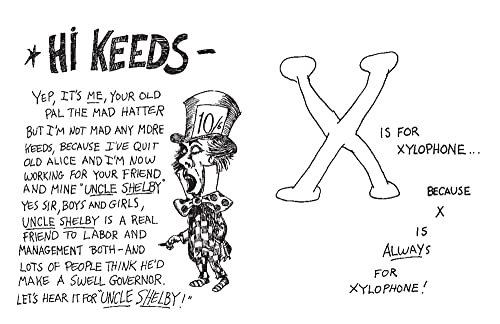 * HI KEEDS-
YEP, IT'S ME, YOUR OLD
PAL THE MAD HATTER
BUT I'M NOT MAD ANY MORE
KEEDS, BECAUSE I'VE QUIT
OLD ALICE AND I'M NOW
WORKING FOR YOUR FRIEND
AND MINE "UNCLE SHELBY"
YES SIR, BOYS AND GIRLS,
UNCLE SHELBY IS A REAL
FRIEND TO LABOR AND
MANAGEMENT BOTH-AND
LOTS OF PEOPLE THINK HE'D
MAKE A SWELL GOVERNOR.
LET'S HEAR IT FOR "UNCLE SHELBY!"
10/6
X
IS FOR
XYLOPHONE...
BECAUSE
X
IS
ALWAYS
FOR
XYLOPHONE!